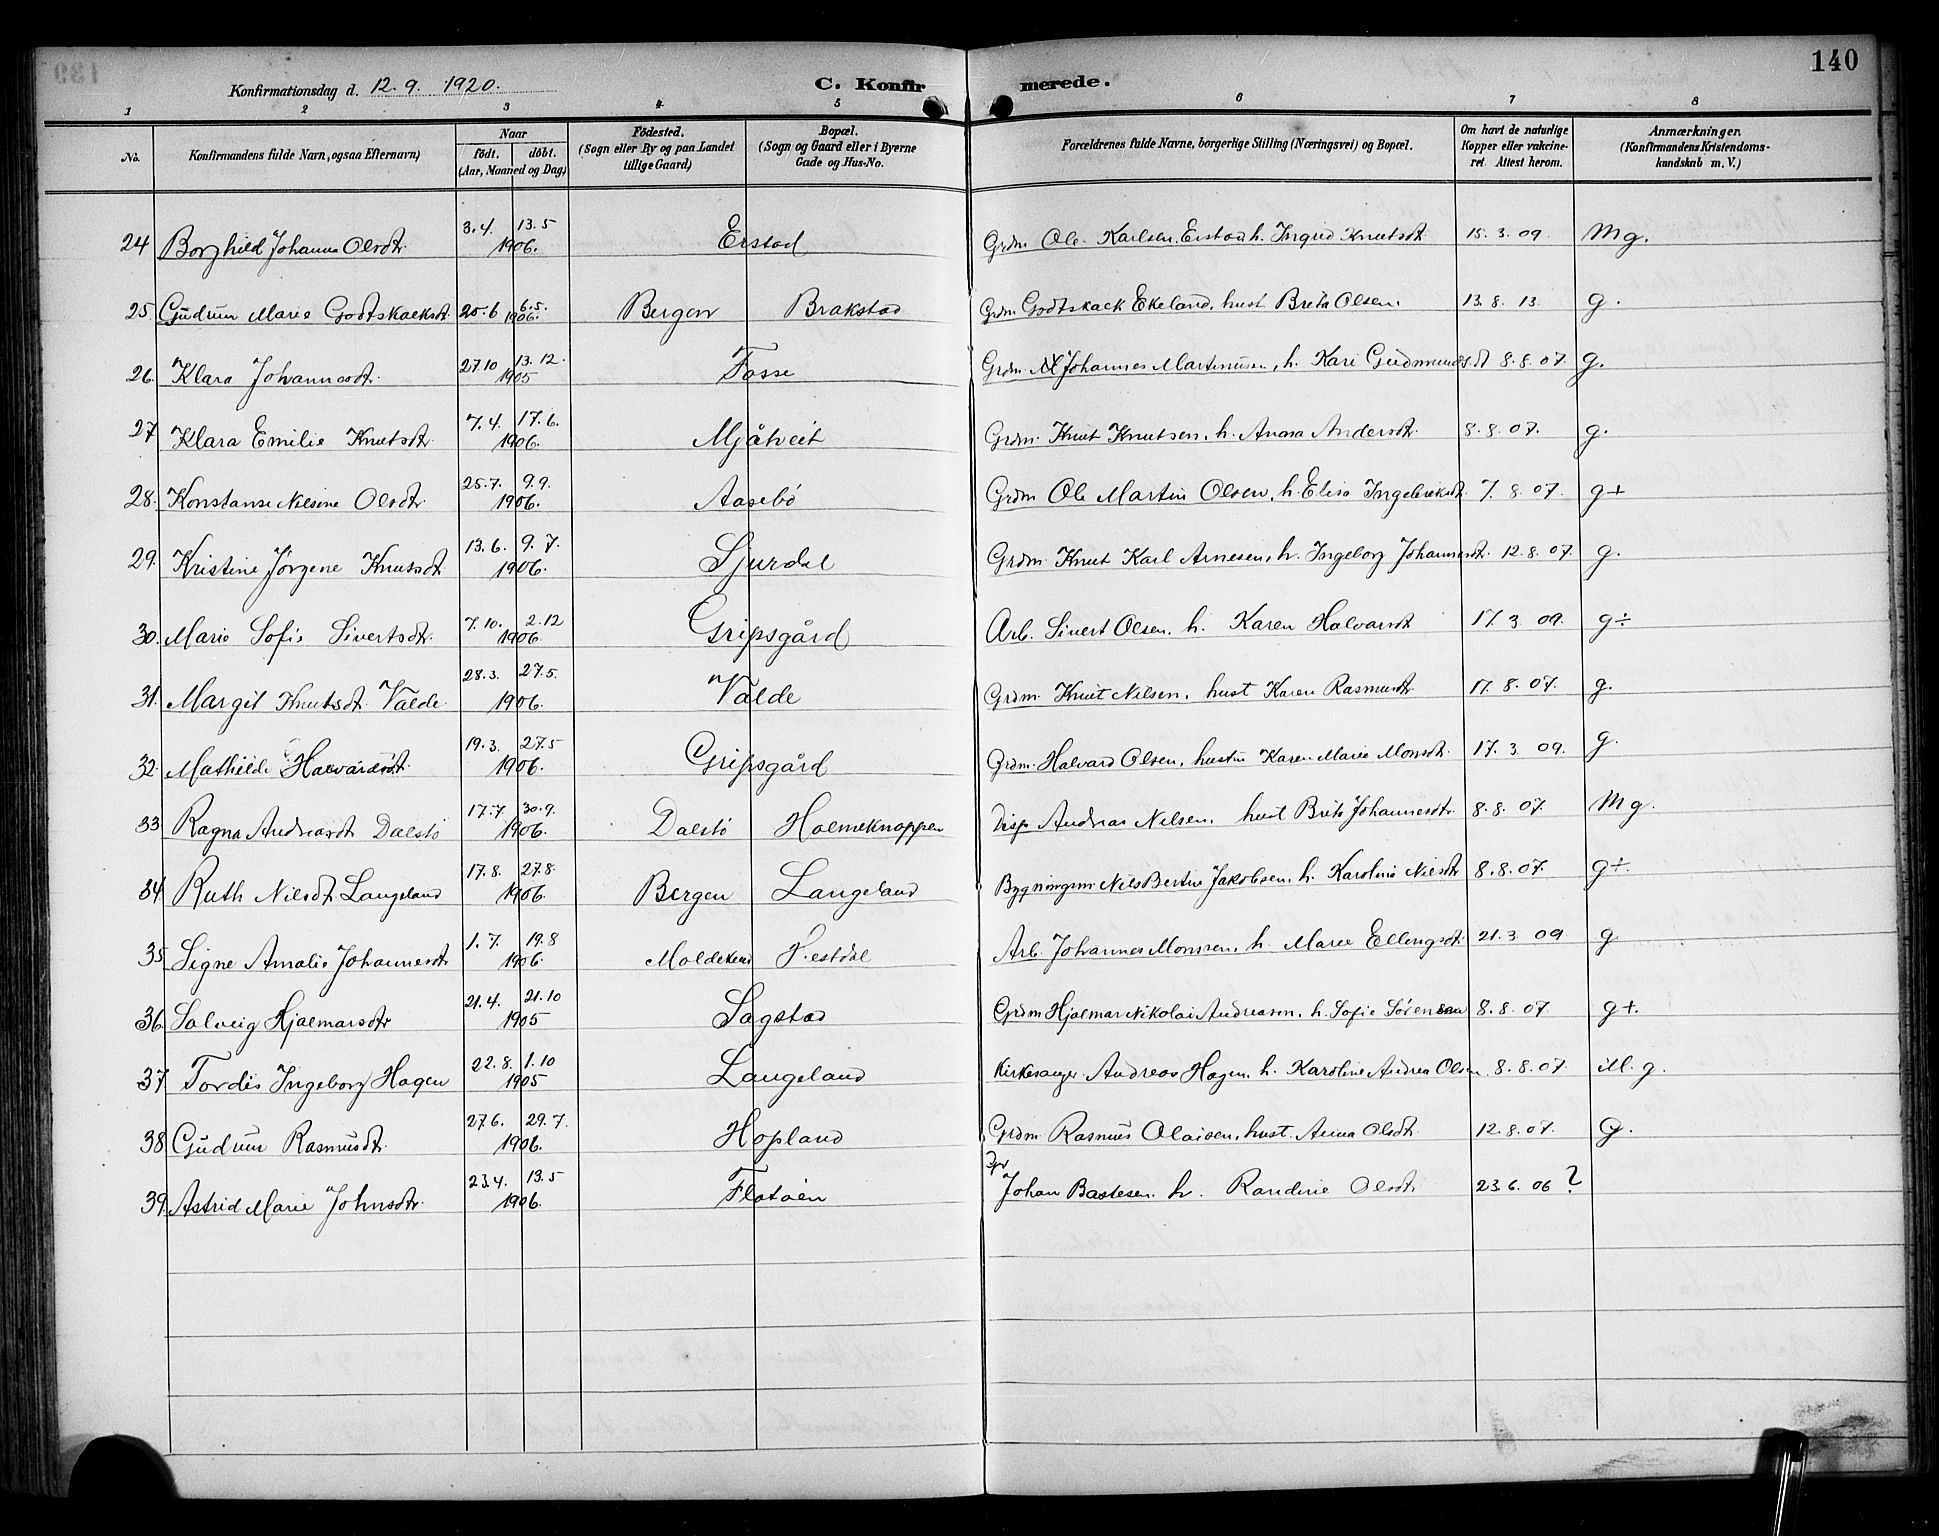 140
Konfirmationsdag d. 12. 9. 1920.
C. Konfirmerede.
1 2 3 4 5 6 7 8
No.
Konfirmandens fulde Navn, ogsaa Efternavn)
Naar
født. døbt.
(Aar, Maaned og Dag)
Födested.
(Sogn eller By og paa Landet
tillige Gaard)
Bopæl.
(Sogn og Gaard eller i Byerne
Gade og Hus-No.
Forældrenes fulde Navne, borgerlige Stilling (Næringsvei) og Bopæl.
Om havt de naturlige
Kopper eller vakcine-
ret Attest herom.
Anmærkninger.
(Konfirmandens Kristendoms-
kundskab m. V.)
24 Borghild Johanna Olsdtr. 3.4. 13.5 1906. Eistad Grdm Ole Karlsen Eistad h. Ingrid Knutsdt 15.3.09. Mg.
25. Gudrun Marie Godtskalksdt. 25.6 6.5. 1906. Bergen Brakstad Grdm Godtskack Ekeland, hust Breta Olsen 13.8.13. g.
26. Klara Johannesdtr. 27.10 13.12. 1905 Fosse Grdm Johannes Martinusen, h. Kari Gudmundsdt 8.8.07. g.
27 Klara Emilie Knutsdtr. 7.4. 17.6. 1906. Mjåtveit Grdm. Knut Knutsen, h. Anna Andersdt. 8.8.07. g.
28. Konstanse Nilsine Olsdtr. 25.7. 9.9. 1906. Aasebø Grdm Ole Martin Olsen, h. Elisa Ingebrektsdt. 7.8.07. g+
29. Kristine Jørgene Knutsdt 13.6. 9.7. 1906. Sjurdal Grdm. Knut Karl Arnesen, h. Ingeborg Johannesdt. 12.8.07. g.
30. Marie Sofie Sivertsdt. 7.10. 2.12 1906. Gripsgård Arb. Sivert Olsen, h. Karen Halvardt 17.3 09. g÷
31. Margit Knutsdt. Valde. 28.3. 27.5. 1906. Valde Grdm. Knut Nilsen, hust Karen Rasmusdt. 17.8.07. g.
32. Mathilde Halvardsdt. 19.3. 27.5 1906. Gripsgård Grdm. Halvard Olsen, hustru Karen Marie Monsdt. 17.3 09. g.
33 Ragna Andreasdt Dalstø 17.7. 30.9. 1906. Dalstø Holmeknappen Disp Andreas Nilsen, hust Brita Johannesdt. 8.8.07. Mg.
34 Ruth Nilsdt. Langeland 17.8. 27.8. 1906. Bergen Langeland Bygningsm Nils Bertin Jakobsen, h. Karoline Nilsdt 8.8.07. g+.
35 Signe Amalie Johannesdt. 1.7. 19.8 1906. Moldekleiv Festdal Arb. Johannes Monssen, h. Marie Ellingsdt. 21.3 09 g
36 Solveig Hjalmarsdtr 21.4. 21.10 1905 Sagstad Grdm Hjalmar Nikolai Andreasen, h. Sofie Sørensen 8.8.07. g+.
37. Tordis Ingeborg Hagen 22.8. 1.10 1905 Langeland Kirkesanger Andreas Hagen, h. Karoline Andrea Olsen 8.8.07. M. g.
38 Gudrun Rasmusdt. 27.6. 29.7. 1906. Hopland Grdm. Rasmus Olaisen, hust. Anna Olsdt. 12.8.07. G.
39. Astrid Marie Johnsdtr. 23.4. 13.5 1906. Flatøen Johan Bastesen h. Randine Olsdt 23.6.06 ?